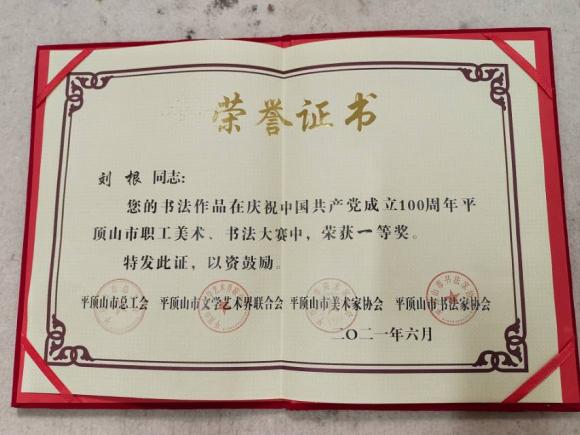 荣誉证书
刘根 同志:
您的书法作品在庆祝中国共产党成立100周年平
顶山市职工美术、书法大赛中，荣获一等奖。
特发此证，以资鼓励。
平顶山市总工会 平顶山市文学艺术界联合会 平顶山市美术家协会 平顶山市书法家协会
二〇二一年六月